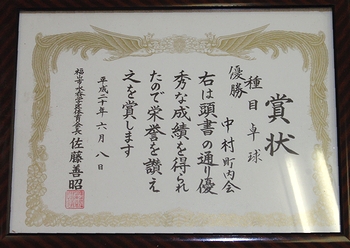 賞状
種目 卓球
優勝
中村町内会
右は頭書の通り優
秀な成績を得られ
たので栄誉を讃え
之を賞します
平成二十年六月八日
福山市水呑学区体育会長 佐藤善昭